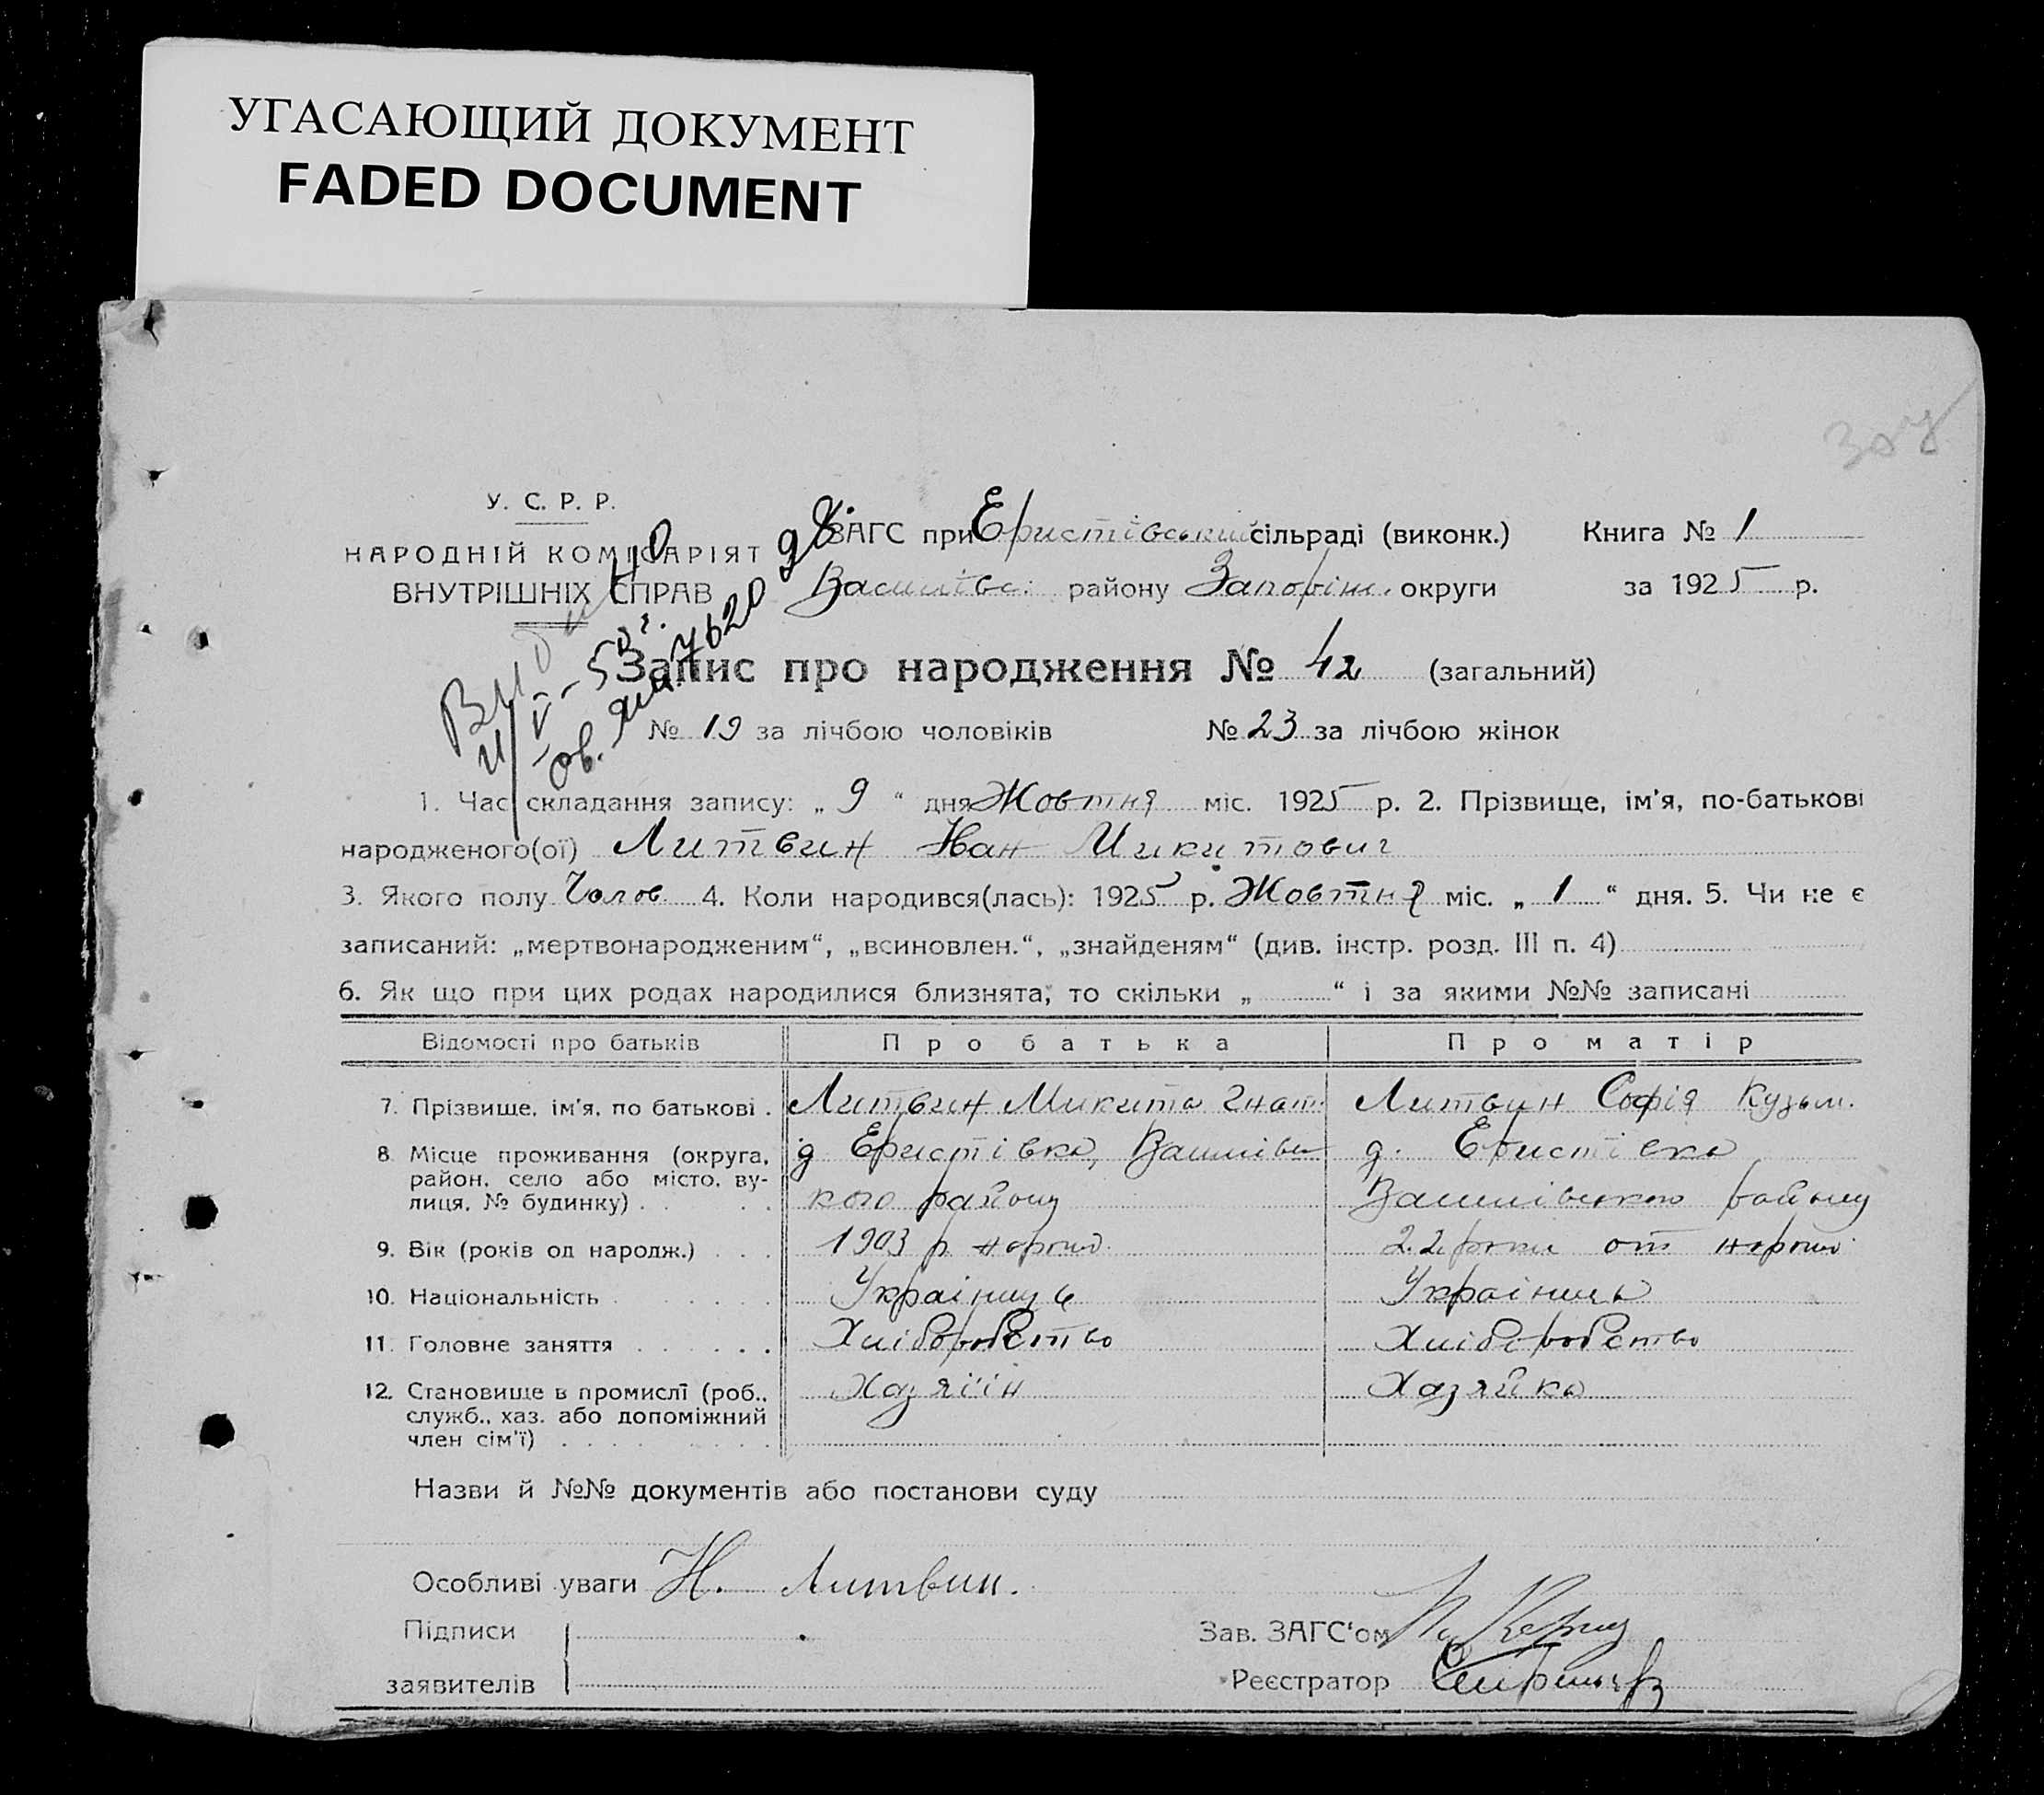 УГАСАЮЩИЙ ДОКУМЕНТ
FADED DOCUMENT
У. С. Р. Р.
НАРОДНІЙ КОМІСАРІЯТ
ВНУТРІШНІХ СПРАВ
ЗАГС при Еристівський сільраді (виконк.) Книга № 1
Василівс. району Запоріж. округи за 1925 р.
Запис про народження № 42 (загальний)
№ 19 за лічбою чоловіків № 23 за лічбою жінок
1. Час складання запису: „ 9 “ дня Жовтня міс. 1925 р. 2. Прізвище, ім’я, по-батькові
народженого(ої) Литвин Іван Микитович
3. Якого полу Чолов. 4. Коли народився(лась): 1925 р. Жовтня міс. „ 1 “ дня. 5. Чи не є
записаний: „мертвонародженим“, „всиновлен.“, „знайденям“ (див. інстр. розд. III п. 4)
6. Як що при цих родах народилися близнята, то скільки „ “ і за якими №№ записані
Відомості про батьків Про батька Про матір
7. Прізвище, ім’я, по батькові . Литвин Микита Гнат. Литвин Софія Кузьм.
8 Місце проживання (округа, район, село або місто, ву-лиця, № будинку) . . . . д Еристівка, Василівсь кого району д. Еристівка Василівського району
9. Вік (років од народж.) . . . 1903 р народ. 22 роки от народ.
10. Національність . . . . . Українць Українць
11. Головне заняття . . . . . . Хліборобство Хліборобство
12. Становище в промислі (роб.,
служб., хаз. або допоміжний
член сім’ї) . . . . . . . . Хазяїін Хазяйка
Назви й №№ документів або постанови суду
Особливі уваги Н. Литвин.
Підписи
заявителів
Зав. ЗАГС‘ом
Реєстратор